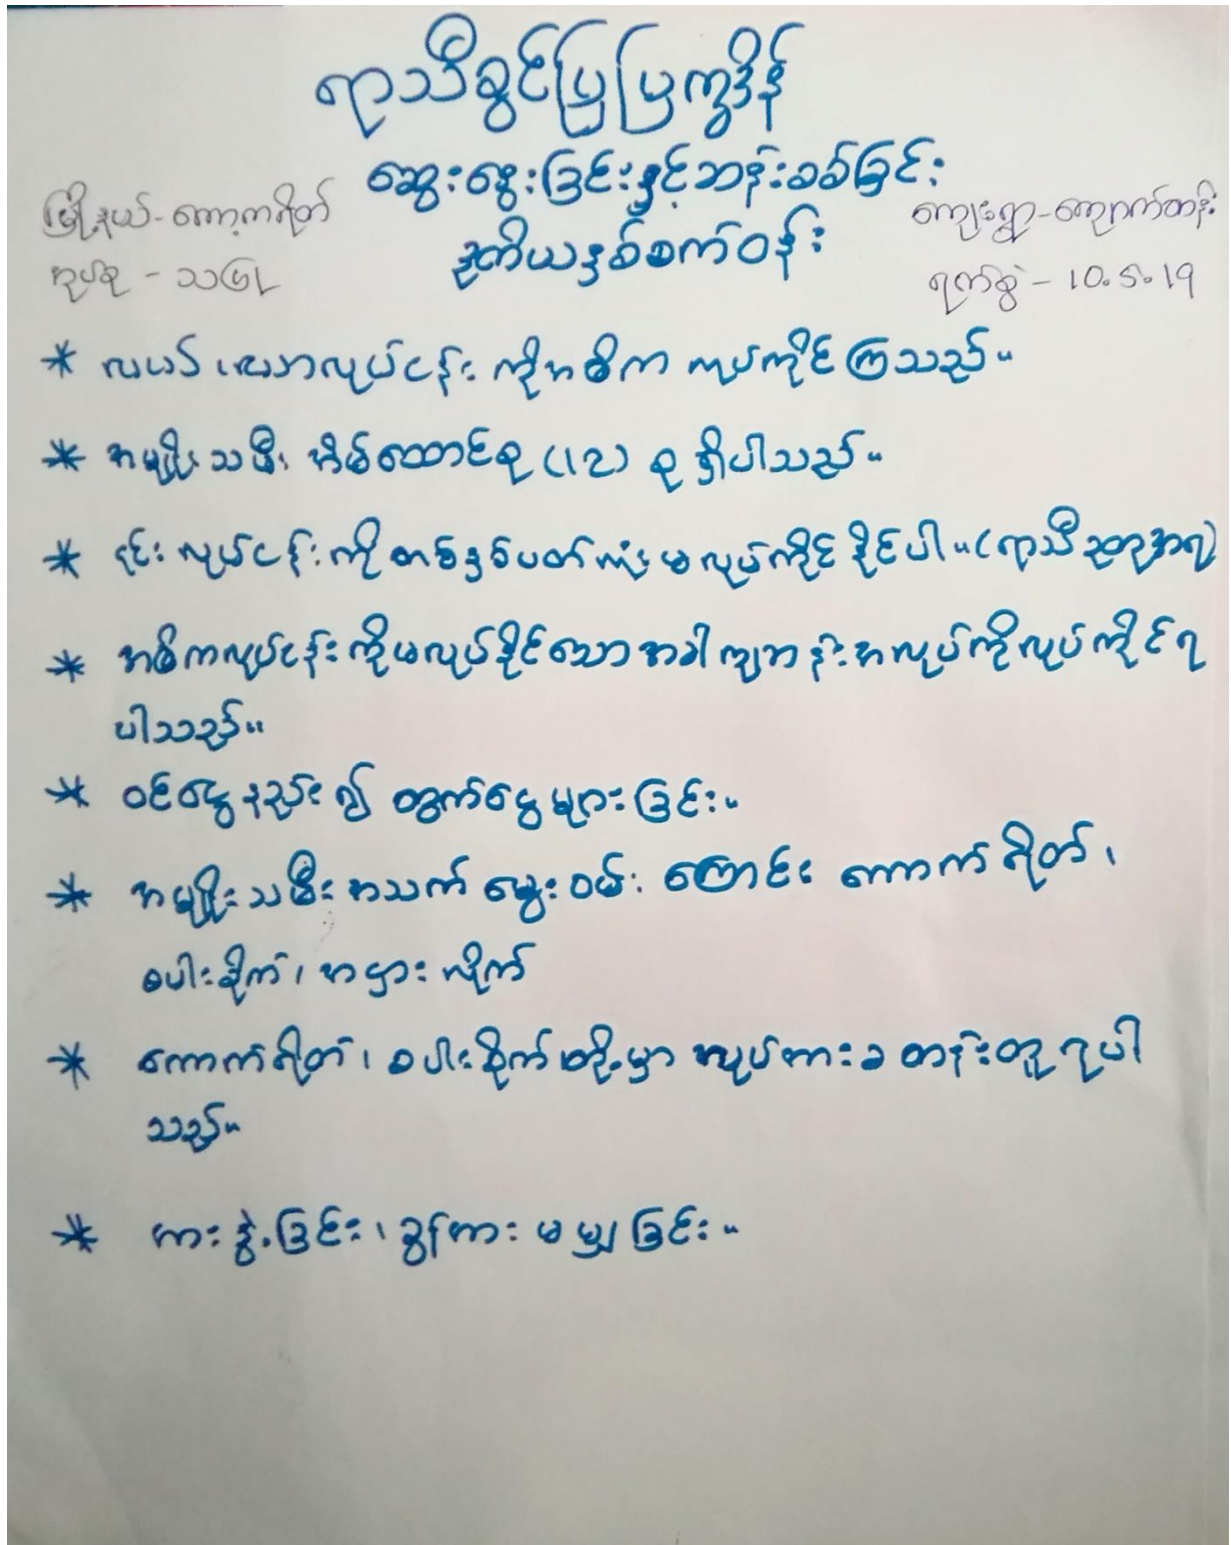 ရာသီခွင်ပြပြက္ခဒိန်
ဆွေးနွေးခြင်းနှင့်ဆန်းစစ်ခြင်း
မြို့နယ်-ကော့ကရိတ်
ကျေးရွာ-ကျောက်တန်း
ဒုတိယနှစ်စက်ဝန်း
အုပ်စု -
ရက်စွဲ - 10.5.19
* လယ်၊ ယာလုပ်ငန်းကိုအဓိက လုပ်ကိုင်ကြသည်။
* အမျိုးသမီး အိမ်ထောင်စု (၁၃) စု ရှိပါသည်။
* ၎င်းလုပ်ငန်းကိုတစ်နှစ်ပတ်လုံးမလုပ်ကိုင်နိုင်ပါ။(ရာသီဥတုအရ)
* အဓိကလုပ်ငန်းကိုမလုပ်နိုင်သောအခါကျဘန်းအလုပ်ကိုလုပ်ကိုင်ရ
ပါသည်။
* ဝင်ငွေနည်း၍ ထွက်ငွေများခြင်း။
* အမျိုးသမီးအသက်မွေးဝမ်းကြောင်း ကောက်ရိတ်၊
စပါးစိုက်၊ အငှားလိုက်
* ကောက်ရိတ်၊ စပါးစိုက်တို့မှာ လုပ်အားခတန်းတူရပါ
သည်။
* အားနွဲ့ခြင်း၊ ခွန်အားမမျှခြင်း။